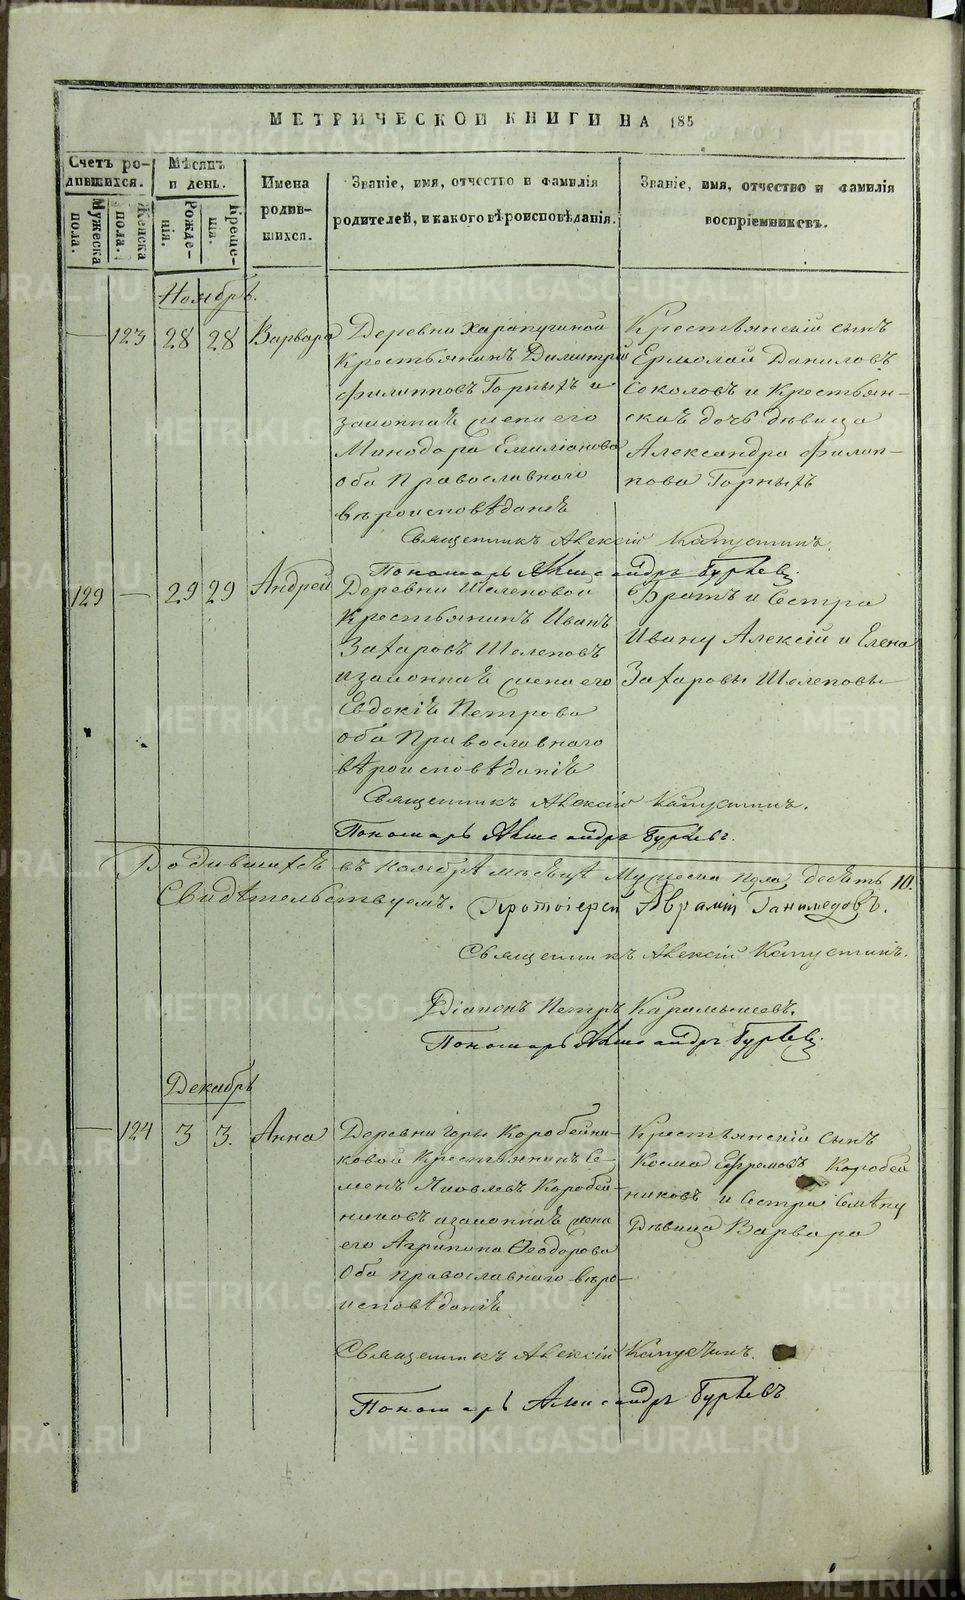 МЕТРИЧЕСКОЙ КНИГИ НА 185
Счетъ ро-
дившихся.
Мѣсяцъ
и день.
Имена
родив-
шихся.
Званіе, имя, отчество и фамилія
родителей, и какого вѣроисповѣданія.
Званіе, имя, отчество и фамилія
воспріемниковъ.
Мужеска
пола.
Женска
пола.
Рожде-
нія.
Креще-
нія.
Ноябрь.
— 123 28 28 Варвара
Деревни Харапугиной
Крестьянинъ Димитрій
Филипповъ Горныхъ и
законная жена его
Минодора Емиліанова
оба Православнаго
вѣроисповѣданія
Крестьянскій сынъ
Ермолай Даниловъ
Соколовъ и Крестьян-
ская дочь дѣвица
Александра Филип-
пова Горныхъ
Священникъ Алексій Капустинъ.
Пономарь Александръ Гурьевъ.
129 — 29 29 Андрей
Деревни Шелеповой
Крестьянинъ Иванъ
Захаровъ Шелеповъ
и законная жена его
Евдокія Петрова
оба Православнаго
вѣроисповѣданія
Братъ и Сестра
Ивану Алексій и Елена
Захаровы Шелеповы
Священникъ Алексій Капустинъ.
Пономарь Александръ Гурьевъ.
Родившихся въ Ноябрѣ мѣсяцѣ Мужеска пола десять 10.
Свидѣтельствуемъ. Протоіерей Аврамій Ганимедовъ.
Священникъ Алексій Капустинъ.
Діаконъ Петръ Карамышевъ.
Пономарь Александръ Гурьевъ.
Декабрь
— 124 3 3. Анна
Деревни Горы Коробейни-
ковой Крестьянинъ Се-
менъ Яковлевъ Коробей-
никовъ и законная жена
его Агрипина Ѳеодорова
Оба православнаго вѣро-
исповѣданія
Крестьянскій сынъ
Косма Ефремовъ Коробей
никовъ и Сестра Семену
Дѣвица Варвара
Священникъ Алексій Капустинъ.
Пономарь Александръ Гурьевъ
METRIKI.GASO-URAL.RU